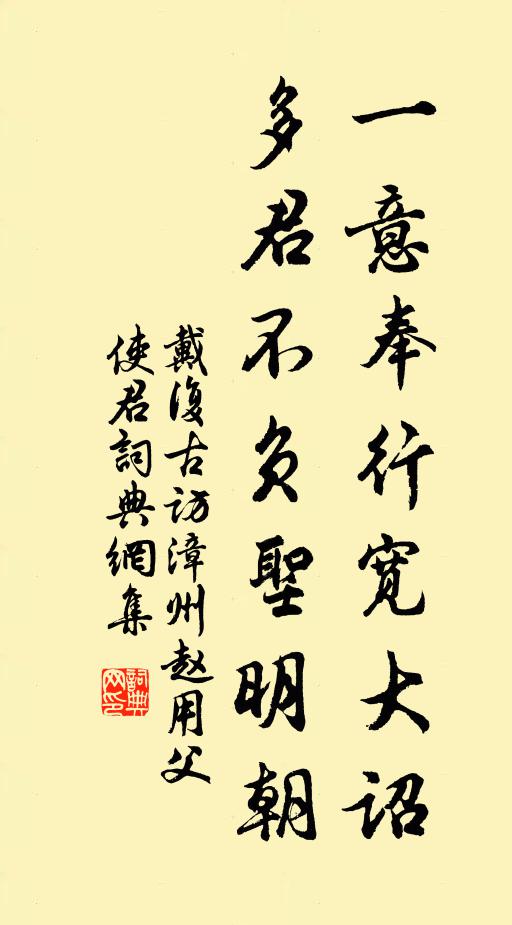 一意奉行宽大诏
多君不负聖明朝
戴復古访漳州赵用父
使君詞典網集
詞典
网印